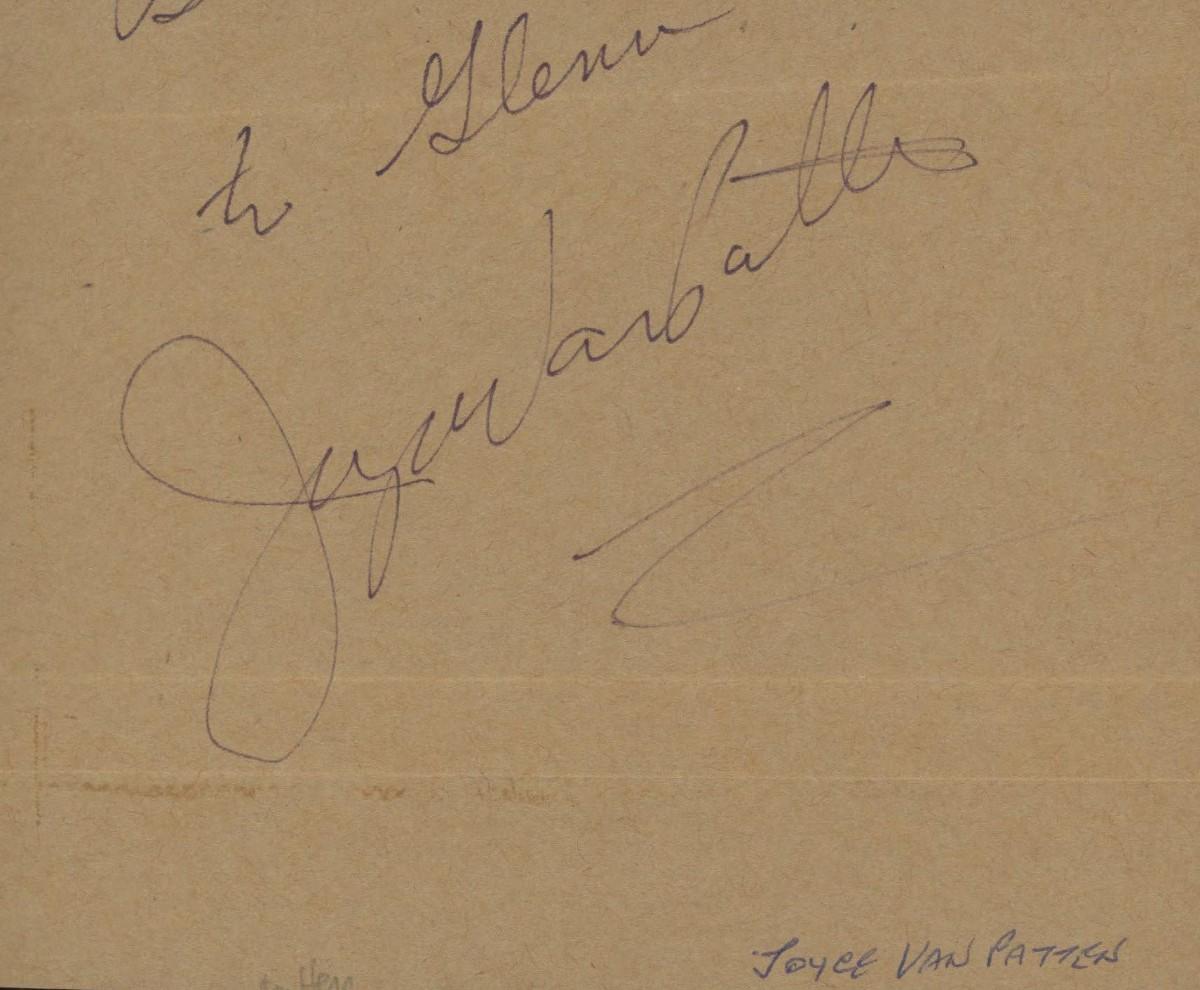 to Glenn
Joyce Van Patten
JOYCE VAN PATTEN